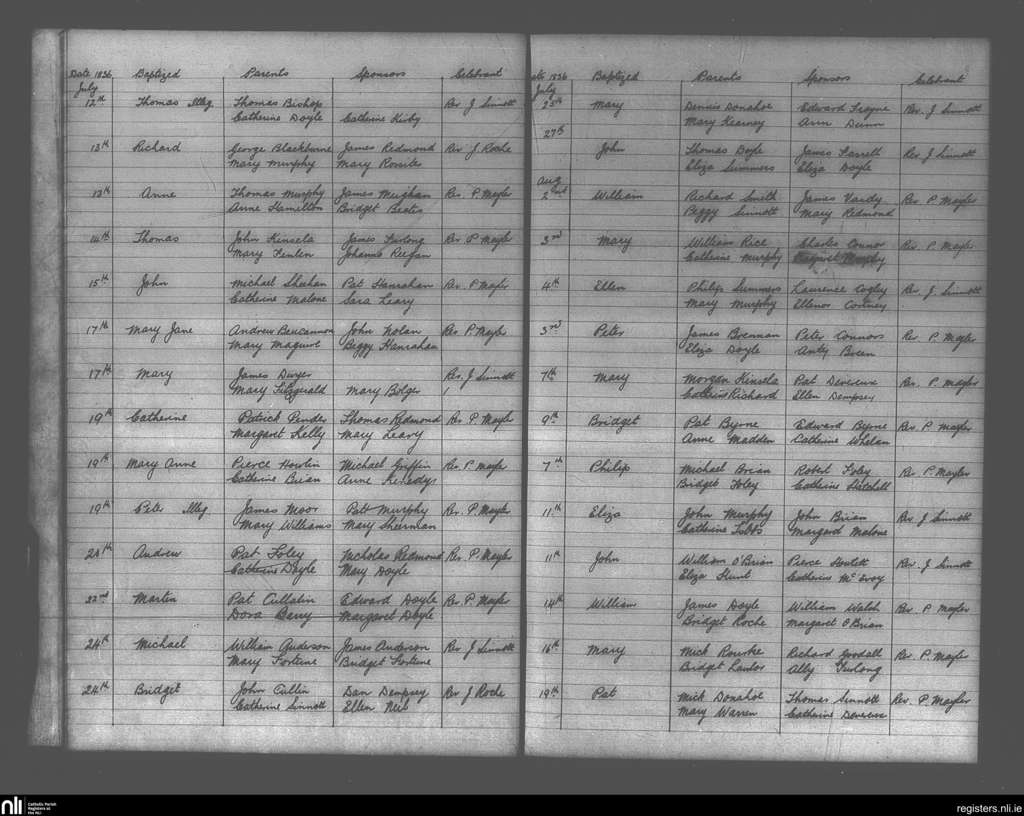 Date 1836 Baptized Parents Sponsors Celebrant
July
12th Thomas Illeg. Thomas Bishop Rev J Sinnott
Catherine Doyle Catherine Kirby
13th Richard George Blackburne James Redmond Rev J Roche
Mary Murphy Mary Rossiter
13th Anne Thomas Murphy James Meighan Rev. P. Mayler
Anne Hamelton Bridget
14th Thomas John Kinsela James Furlong Rev P Mayler
Mary Fenlen Johanna
15th John Michael Sheehan Pat Hanrahan Rev. P Mayler
Catherine Malone Sara Leary
17th Mary Jane Andrew John Nolan Rev P. Mayler
Mary Maguire Peggy Hanrahan
17th Mary James Dwyer Rev. J Sinnott
Mary Fitzgerald Mary Bolger
19th Catherine Patrick Pender Thomas Redmond Rev P. Mayler
Margaret Kelly Mary Leary
19th Mary Anne Pierce Howlin Michael Griffin Rev. P. Mayler
Catherine Brian Anne Kenedys
19th Peter Illeg. James Moor Patt Murphy Rev. P. Mayler
Mary Williams Mary Sheernan
21th Andrew Pat Foley Nicholas Redmond Rev. P. Mayler
Catherine Doyle Mary Doyle
22nd Martin Pat Cullatin Edward Doyle Rev. P. Mayler
Dora Barry Margaret Doyle
24th Michael William Anderson James Anderson Rev J Sinnott
Mary Fortune Bridget Fortune
24th Bridget John Cullin Dan Dempsey Rev J Roche
Catherine Sinnott Ellen Neil
ate 1836 Baptized Parents Sponsors Celebrant
July
25th Mary Dennis Donahoe Edward Frayne Rev. J Sinnott
Mary Kearney Ann Dunn
27th
John Thomas Doyle James Farrell Rev J Sinnott
Eliza Summers Eliza Doyle
Aug
2nd William Richard Smith James Vardy Rev P Mayler
Peggy Sinnott Mary Redmond
3rd Mary William Rice Charles Connor Rev. P. Mayler
Catherine Murphy Margaret Murphy
4th Ellen Philip Summers Laurence Cogley Rev. J. Sinnott
Mary Murphy Ellenor Cortney
3rd Peter James Brennan Peter Connors Rev P. Mayler
Eliza Doyle Anty Breen
7th Mary Morgan Kinsela Pat Devereux Rev. P. Mayler
Richard Ellen Dempsey
9th Bridget Pat Byrne Edward Byrne Rev. P Mayler
Anne Madden Catherine Whelan
7th Philip Michael Brian Robert Foley Rev. P. Mayler
Bridget Foley Catherine Hatchell
11th Eliza John Murphy John Brian Rev J. Sinnott
Catherine Margaret Malone
11th John William O'Brian Pierce Howlett Rev. J Sinnott
Eliza Hunt Catherine McEvoy
14th William James Doyle William Walsh Rev P Mayler
Bridget Roche Margaret O'Brian
16th Mary Mick Rourke Richard Goodall Rev P. Mayler
Bridget Lawlor Ally Furlong
19th Pat Mick Donahoe Thomas Sinnott Rev. P. Mayler
Mary Warren Catherine Devereux
nli Catholic Parish
Registers at
the NLI
registers.nli.ie